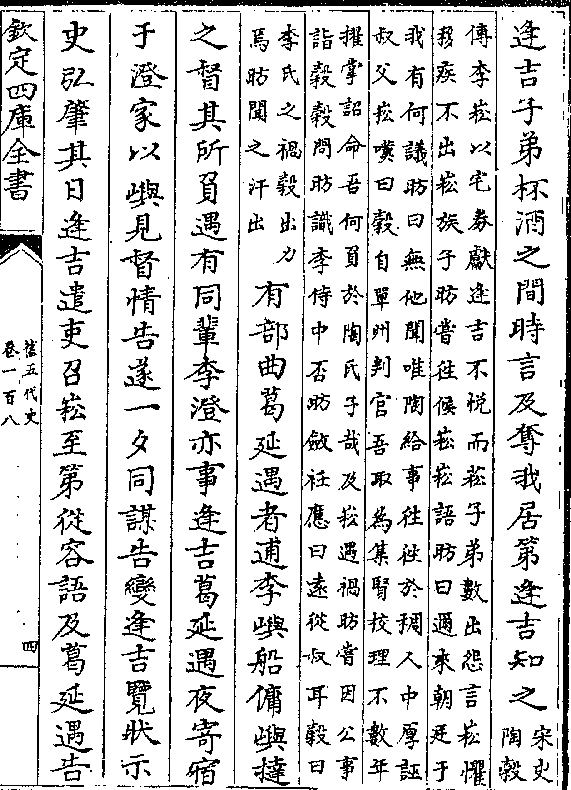 逢吉子弟杯酒之間時言及奪我居第逢吉知之
宋史
陶穀
傳李崧以宅券獻逢吉不悅而崧子弟數出怨言崧懼
移疾不出崧族子昉嘗徃候崧崧語昉曰邇來朝廷于
我有何議昉曰無他聞唯陶給事徃徃於稠人中厚誣
叔父崧嘆曰穀自單州判官吾取為集賢校理不數年
擢掌詔命吾何負於陶氏子哉及崧遇禍昉嘗因公事
詣穀穀問昉識李侍中否昉斂衽應曰遠從叔耳穀曰
李氏之禍穀出力
焉昉聞之汗出
有部曲葛延遇者逋李嶼船傭嶼撻
之督其所負遇有同輩李澄亦事逢吉葛延遇夜寄宿
于澄家以嶼見督情告遂一夕同謀告變逢吉覽狀示
史弘肇其日逢吉遣吏召崧至第從容語及葛延遇告
欽定四庫全書
舊五代史
卷一百八
四